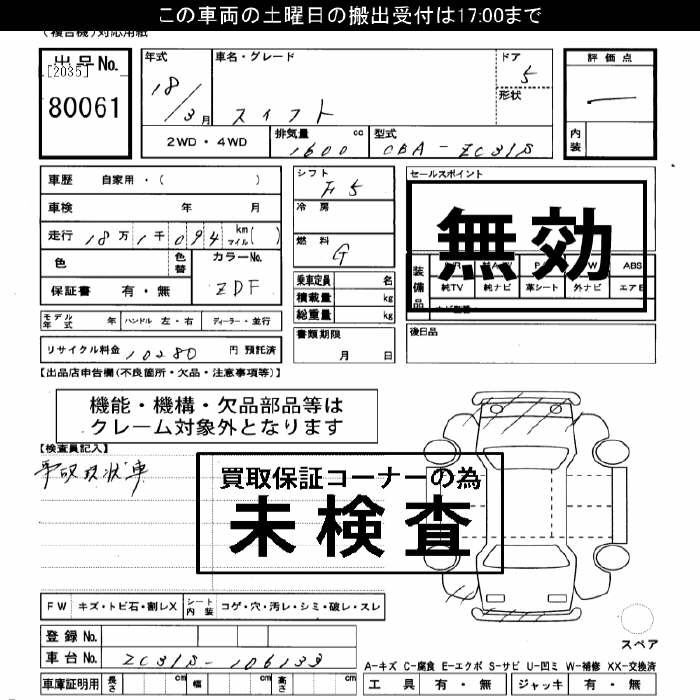 この車両の土曜日の搬出受付は17:00まで
(複合機)対応用紙
出品No.
[2035]
80061
年式
18/3月
車名・グレード
スイフト
ドア
5
形状
評価点
内装
2WD・4WD
排気量
1600 cc
型式
CBA-ZC31S
車歴 自家用・( )
車検 年 月
走行 18万1千094 km マイル( )
色
色替
カラーNo.
ZDF
保証書 有・無
モデル年式 年
ハンドル 左・右
ディーラー・並行
リサイクル料金 10280 円 預託済
シフト
F5
冷房
燃料
G
乗車定員 名
積載量 kg
総重量 kg
書類期限
月 日
セールスポイント
無効
装備品
ABS
純TV 純ナビ 革シート 外ナビ エアB
後日品
【出品店申告欄(不良箇所・欠品・注意事項等)】
機能・機構・欠品部品等は
クレーム対象外となります
【検査員記入】
事故現状車
買取保証コーナーの為
未検査
FW キズ・トビ石・割レX
シート内装 コゲ・穴・汚レ・シミ・破レ・スレ
登録No.
車台No. ZC31S-106133
車庫証明用 長さ cm 幅 cm 高さ cm
スペア
A-キズ C-腐食 E-エクボ S-サビ U-凹ミ W-補修 XX-交換済
工具 有・無 ジャッキ 有・無